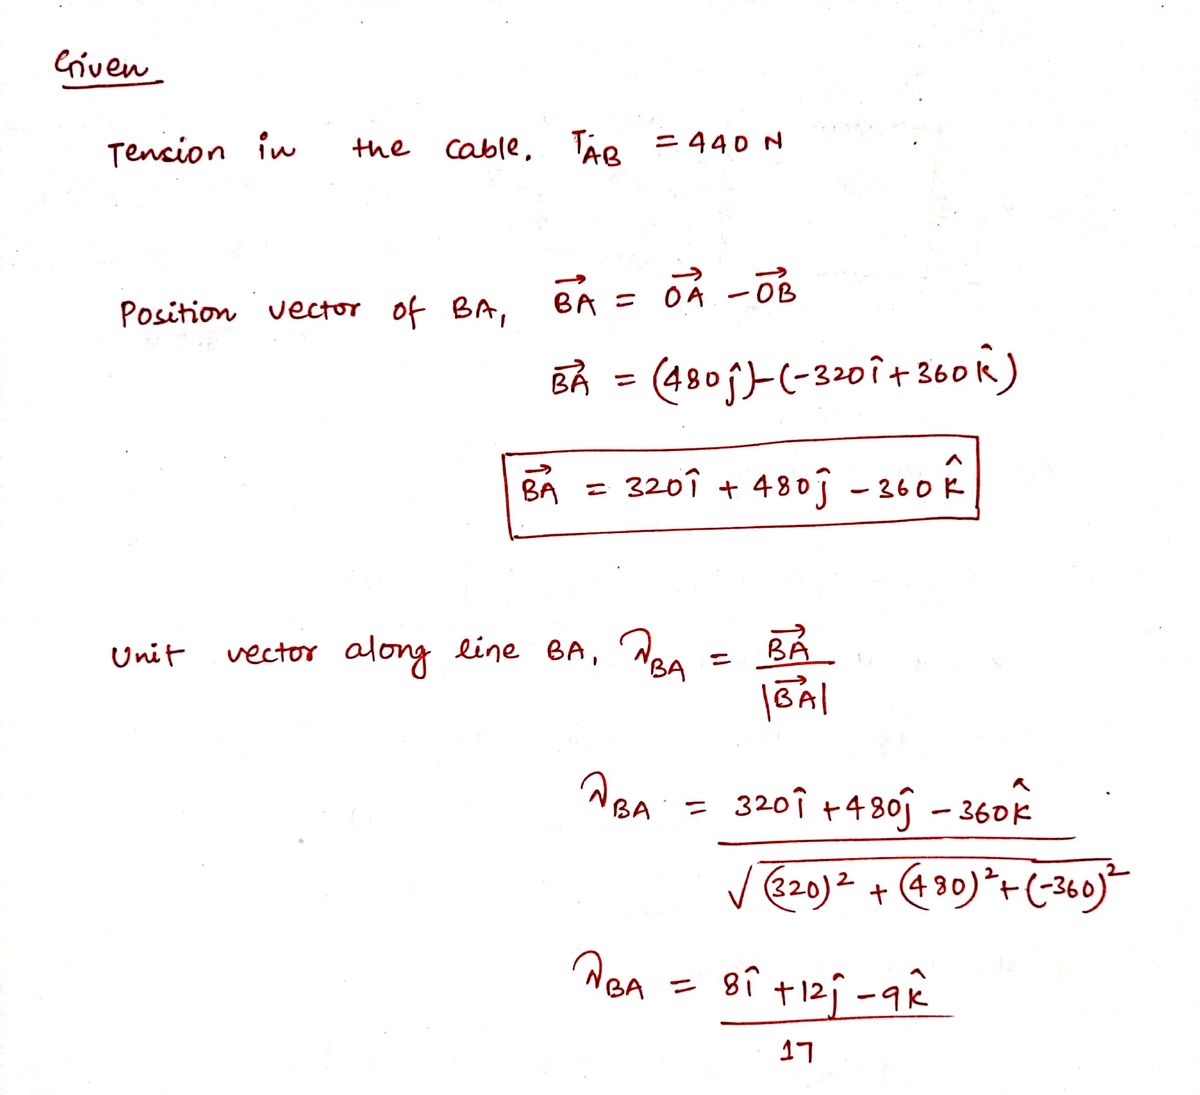 Given
Tension in the cable, T_AB = 440 N
Position vector of BA, →BA = →OA - →OB
→BA = (480ĵ)-(-320î+360k̂)
→BA = 320î + 480ĵ - 360k̂
Unit vector along line BA, λ_BA = →BA / |→BA|
λ_BA = 320î + 480ĵ - 360k̂
√(320)² + (480)² + (-360)²
λ_BA = 8î + 12ĵ - 9k̂
17